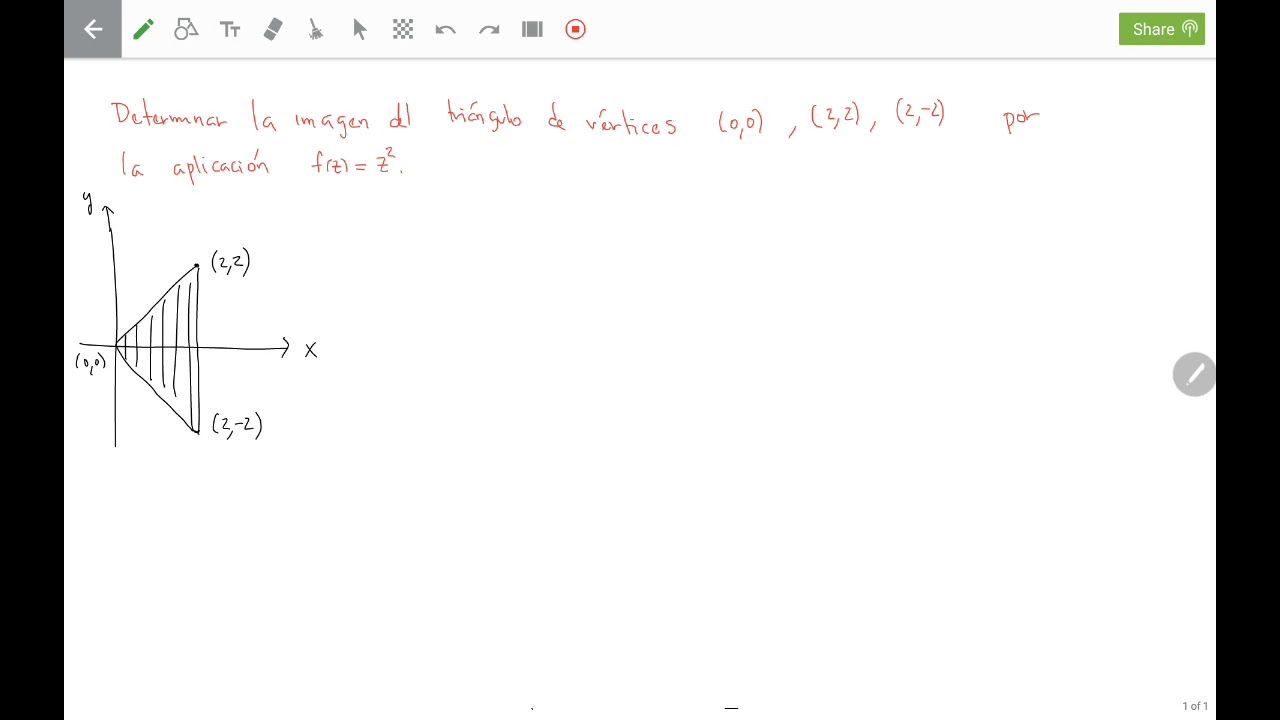 Share
Determinar la imagen del triángulo de vértices (0,0) , (2,2) , (2,-2) por
la aplicación f(z) = z².
y
(2,2)
x
(0,0)
(2,-2)
1 of 1